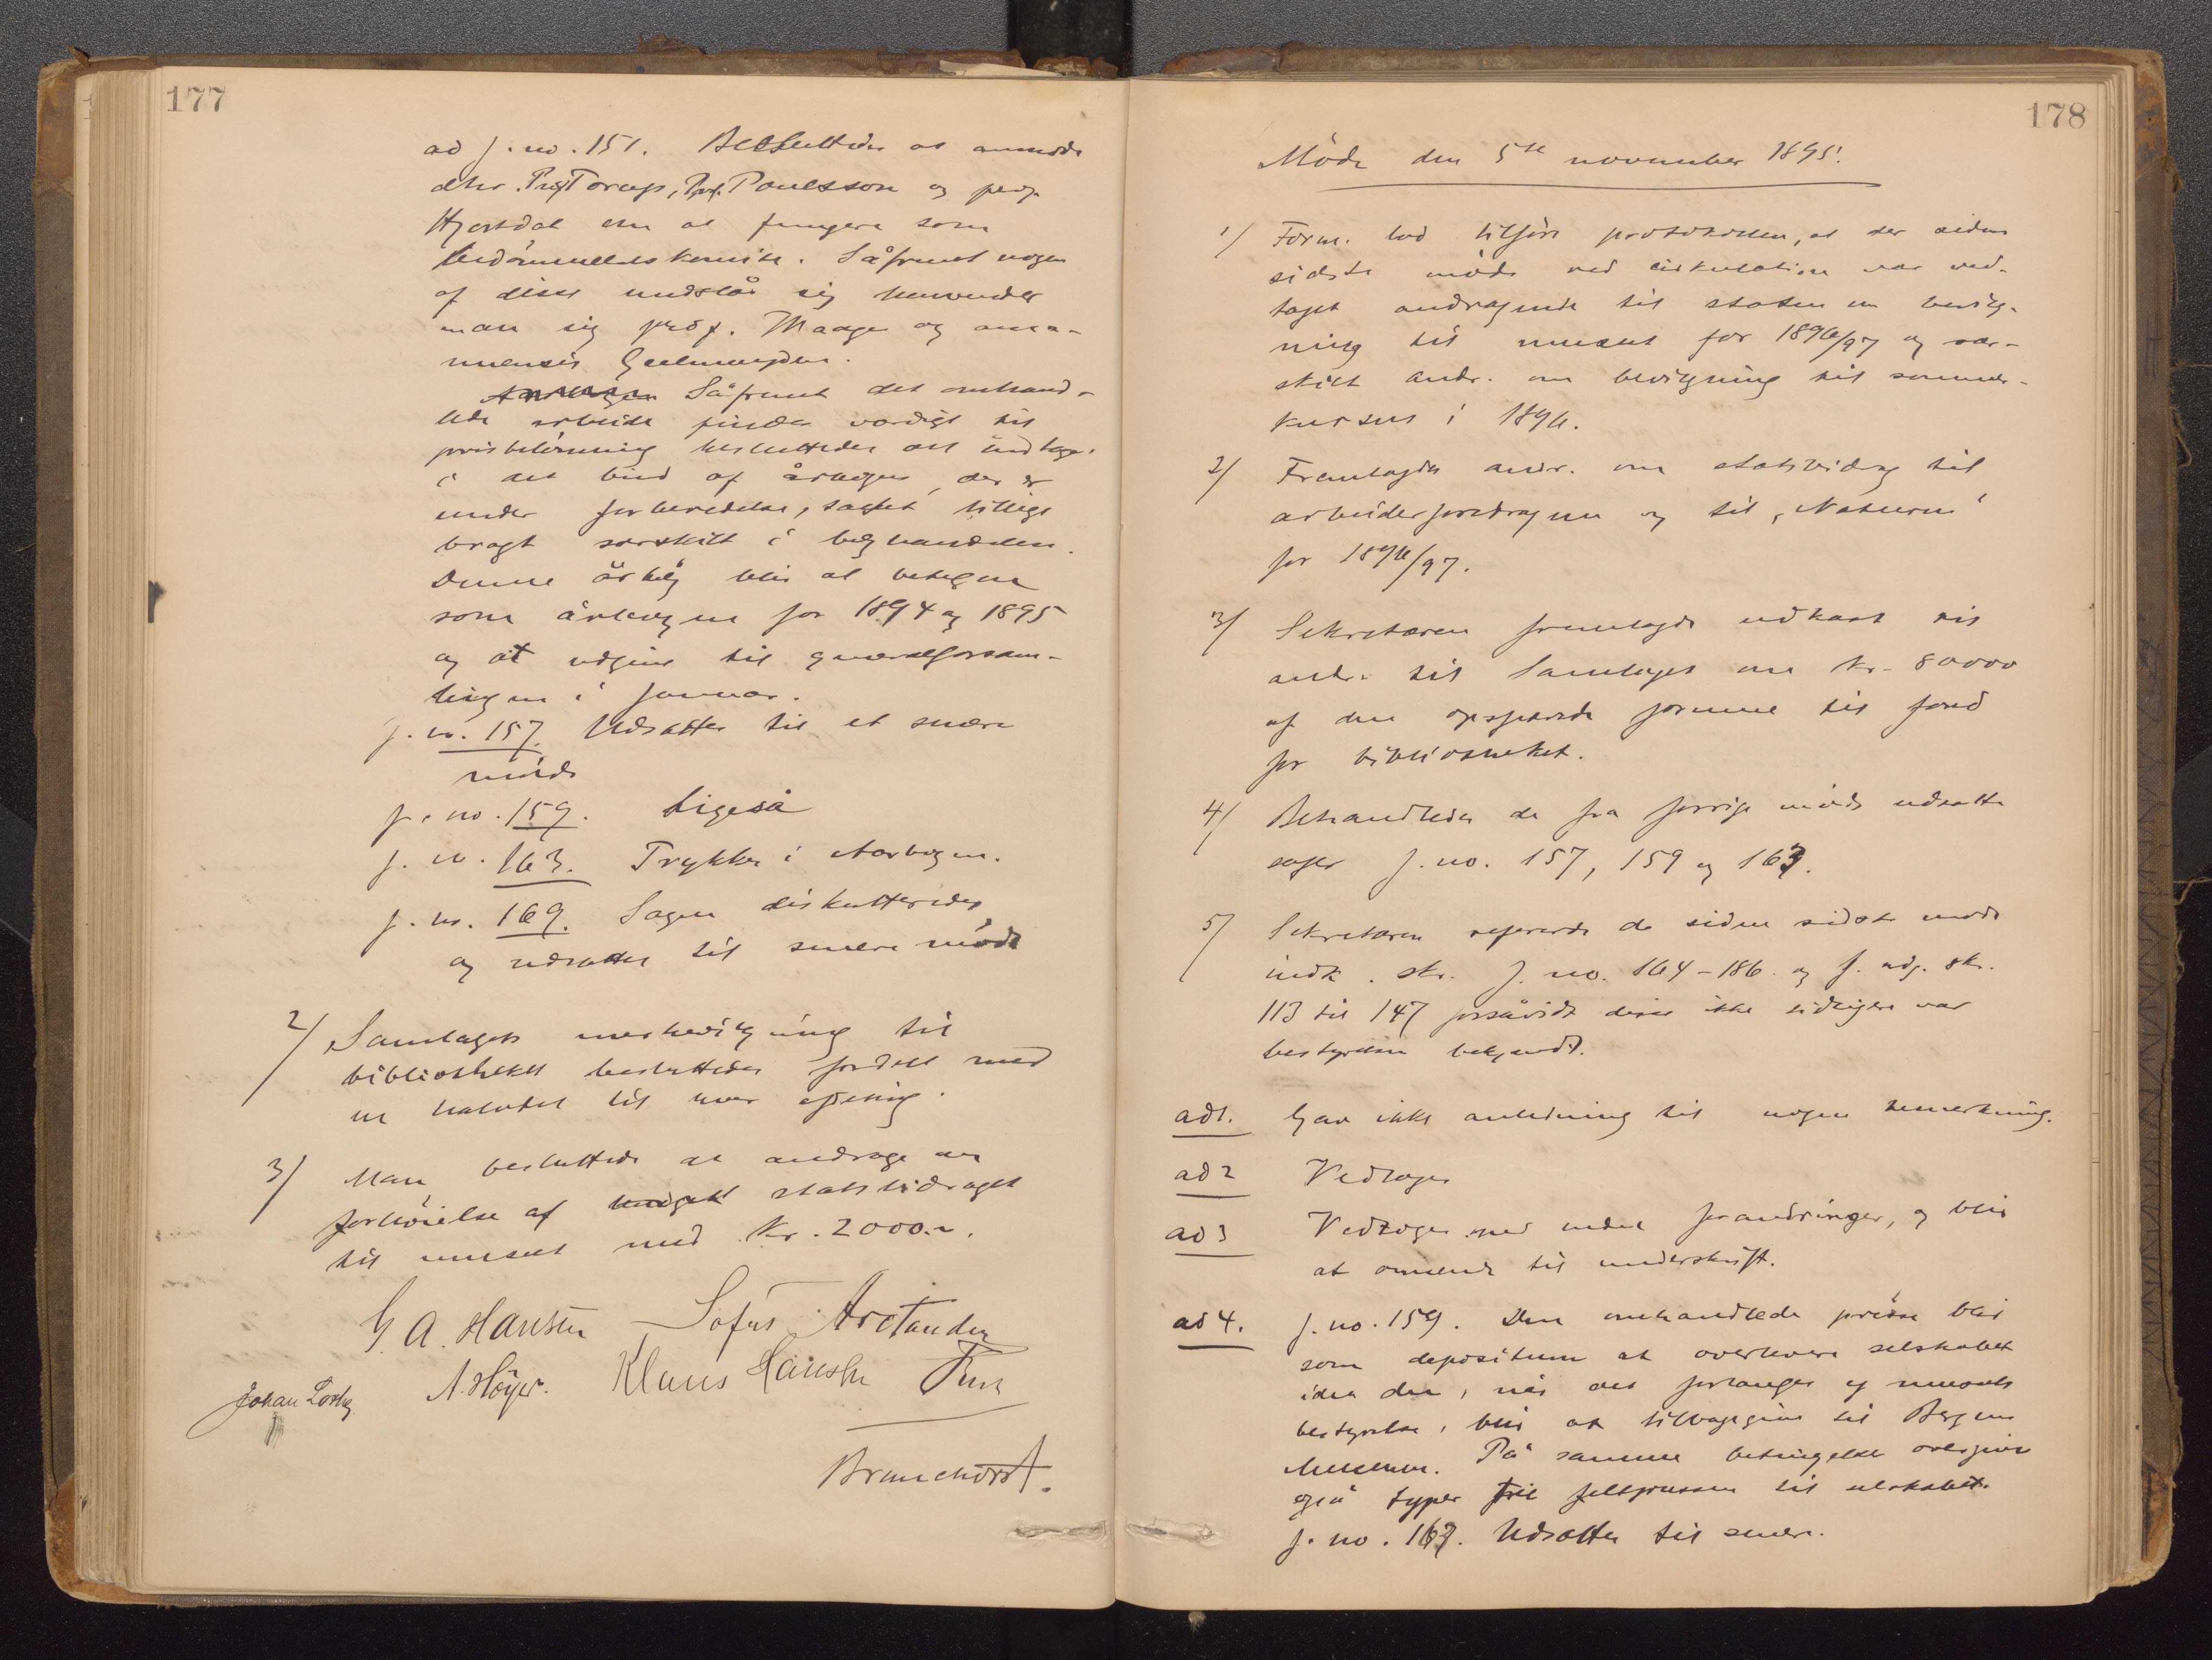 177
ad j. no. 151. Besluttedes at anmode
dhr. Prof Torup, Prof. Poulsson og prof.
Hjortdal om at fungere som
bedömmelseskomite. Såfremt nogen
af disse undslår sig henvender
man sig prof. Waage og ama-
nuensis Geelmuyden.
Såfremt det omhand-
lede arbeide findes værdigt til
prisbelönning besluttedes det indtaget
i det bind af årbogen, der er
under forberedelse, samt tillige
bragt særskilt i boghandelen.
Denne årbog blir at betegne
som årbogen for 1894 og 1895
og at udgive til generalforsam-
lingen i januar.
j. no. 157. Udsattes til et senere
möde
j. no. 159. Ligeså
j. no. 163. Trykkes i Aarbogen.
j. no. 169. Sagen diskutteredes
og udsattes til senere möde
2/ Samlagets merbevilgning til
bibliotheket besluttedes fordelt med
en halvdel til hver afdeling.
3/ Man besluttede at andrage om
forhöielse af statsbidraget
til museet med Kr. 2000.-.
G A. Hansen Sofus Arctander
Johan Lothe A. Höyer. Klaus Hanssen
Brunchorst.
178
Möde den 5te november 1895.
1/ Form. lod tilföre protokollen, at der siden
sidste möde ved cirkulation var ved-
taget andragende til staten om bevilg-
ning til museet for 1896/97 og sær-
skilt andr. om bevilgning til sommer-
kursus i 1896.
2/ Fremlagdes andr. om statsbidrag til
arbeiderforedragene og til „Naturen"
for 1896/97.
3/ Sekretæren fremlagde udkast til
andr. til Samlaget om kr. 80000
af den opsparede formue til fond
for bibliotheket.
4/ Behandledes de fra forrige möde udsatte
sager j. no. 157, 159 og 163.
5/ Sekretæren refererede de siden sidste möde
indk. skr. j. no. 164-186 og j. udg. skr.
113 til 147 forsåvidt disse ikke tidligere var
bestyrelsen bekjendt.
ad 1. Gav ikke anledning til nogen bemerkning.
ad 2 Vedtoges
ad 3 Vedtoges med endel forandringer, og blir
at omsende til underskrift.
ad 4. j. no. 159. Den omhandlede presse blir
som depositum at overlevere selskabet
idet den, når det forlanges af museets
bestyrelse, blir at tilbagegive til Bergens
Museum. På samme betingelse overgives
også typer til feltpressen til selskabet.
j. no. 163. Udsattes til senere.